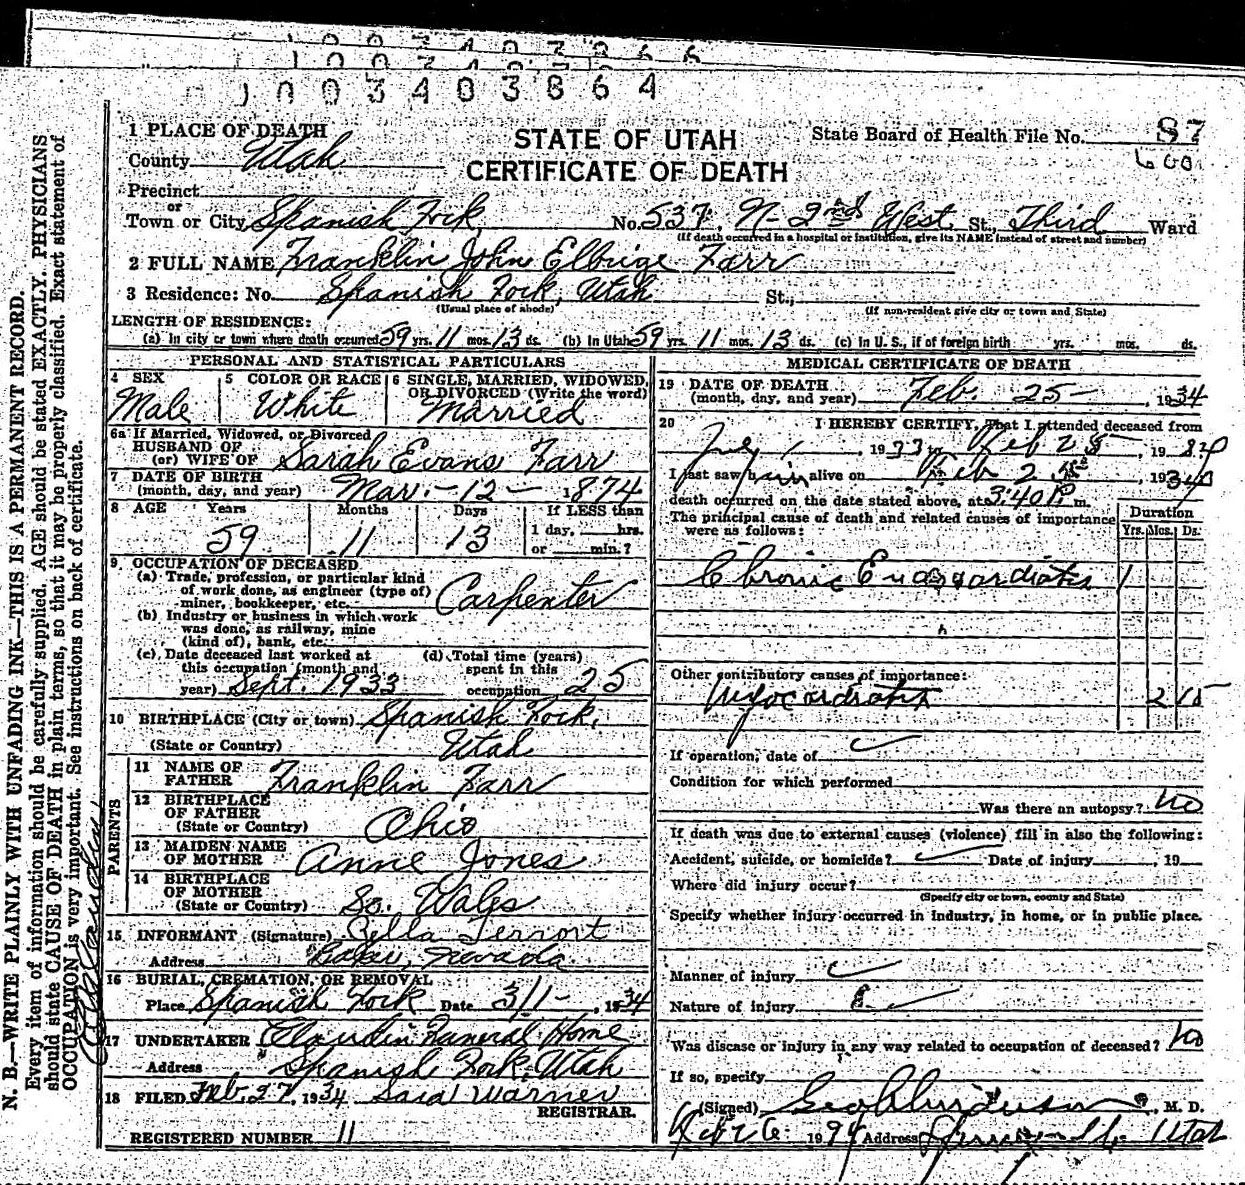 1 0 0 3 4 0 3 8 6 4
1 PLACE OF DEATH
STATE OF UTAH
CERTIFICATE OF DEATH
State Board of Health File No. 87
600
County Utah
Precinct
or
Town or City Spanish Fork No. 537, N- 2nd West St., Third Ward
(If death occurred in a hospital or institution, give its NAME instead of street and number)
2 FULL NAME Franklin John Elbrige Farr
3 Residence: No. Spanish Fork, Utah St.,
(Usual place of abode) (If non-resident give city or town and State)
LENGTH OF RESIDENCE:
(a) In city or town where death occurred 59 yrs. 11 mos. 13 ds. (b) In Utah 59 yrs. 11 mos. 13 ds. (c) In U. S., if of foreign birth yrs. mos. ds.
PERSONAL AND STATISTICAL PARTICULARS
4 SEX Male
5 COLOR OR RACE White
6 SINGLE, MARRIED, WIDOWED, OR DIVORCED (Write the word) Married
6a If Married, Widowed, or Divorced
HUSBAND OF
(or) WIFE OF Sarah Evans Farr
7 DATE OF BIRTH
(month, day, and year) Mar. - 12 - 1874
8 AGE Years Months Days If LESS than
1 day, hrs.
59 11 13 or min.?
9 OCCUPATION OF DECEASED
(a) Trade, profession, or particular kind
of work done, as engineer (type of)
miner, bookkeeper, etc. Carpenter
(b) Industry or business in which work
was done, as railway, mine
(kind of), bank, etc.
(c) Date deceased last worked at
this occupation (month and
year) Sept. 1933
(d) Total time (years)
spent in this
occupation 25
10 BIRTHPLACE (City or town) Spanish Fork,
(State or Country) Utah
PARENTS
11 NAME OF
FATHER Franklin Farr
12 BIRTHPLACE
OF FATHER
(State or Country) Ohio
13 MAIDEN NAME
OF MOTHER Anne Jones
14 BIRTHPLACE
OF MOTHER
(State or Country) So. Wales
15 INFORMANT (Signature)
Address Nevada
16 BURIAL, CREMATION, OR REMOVAL
Place Spanish Fork Date 3/1- , 1934
17 UNDERTAKER Claudin Funeral Home
Address Spanish Fork, Utah
18 FILED Feb. 27, 1934 Said Warner
REGISTRAR.
REGISTERED NUMBER 11
MEDICAL CERTIFICATE OF DEATH
19 DATE OF DEATH
(month, day, and year) Feb. 25- , 1934
20 I HEREBY CERTIFY, That I attended deceased from
July 1, 1933, Feb 25, 1934
I last saw him alive on Feb 25, 1934
death occurred on the date stated above, at 3:40 P. m.
The principal cause of death and related causes of importance
were as follows:
Duration
Yrs. Mos. Ds.
Chronic 1
Other contributory causes of importance:
Myocarditis 2 15
If operation, date of
Condition for which performed
Was there an autopsy? No
If death was due to external causes (violence) fill in also the following:
Accident, suicide, or homicide? Date of injury , 19
Where did injury occur?
(Specify city or town, county and State)
Specify whether injury occurred in industry, in home, or in public place.
Manner of injury
Nature of injury
Was disease or injury in any way related to occupation of deceased? No
If so, specify
(Signed) , M. D.
Address Utah
N. B.—WRITE PLAINLY WITH UNFADING INK—THIS IS A PERMANENT RECORD.
Every item of information should be carefully supplied. AGE should be stated EXACTLY. PHYSICIANS
should state CAUSE OF DEATH in plain terms, so that it may be properly classified. Exact statement of
OCCUPATION is very important. See instructions on back of certificate.